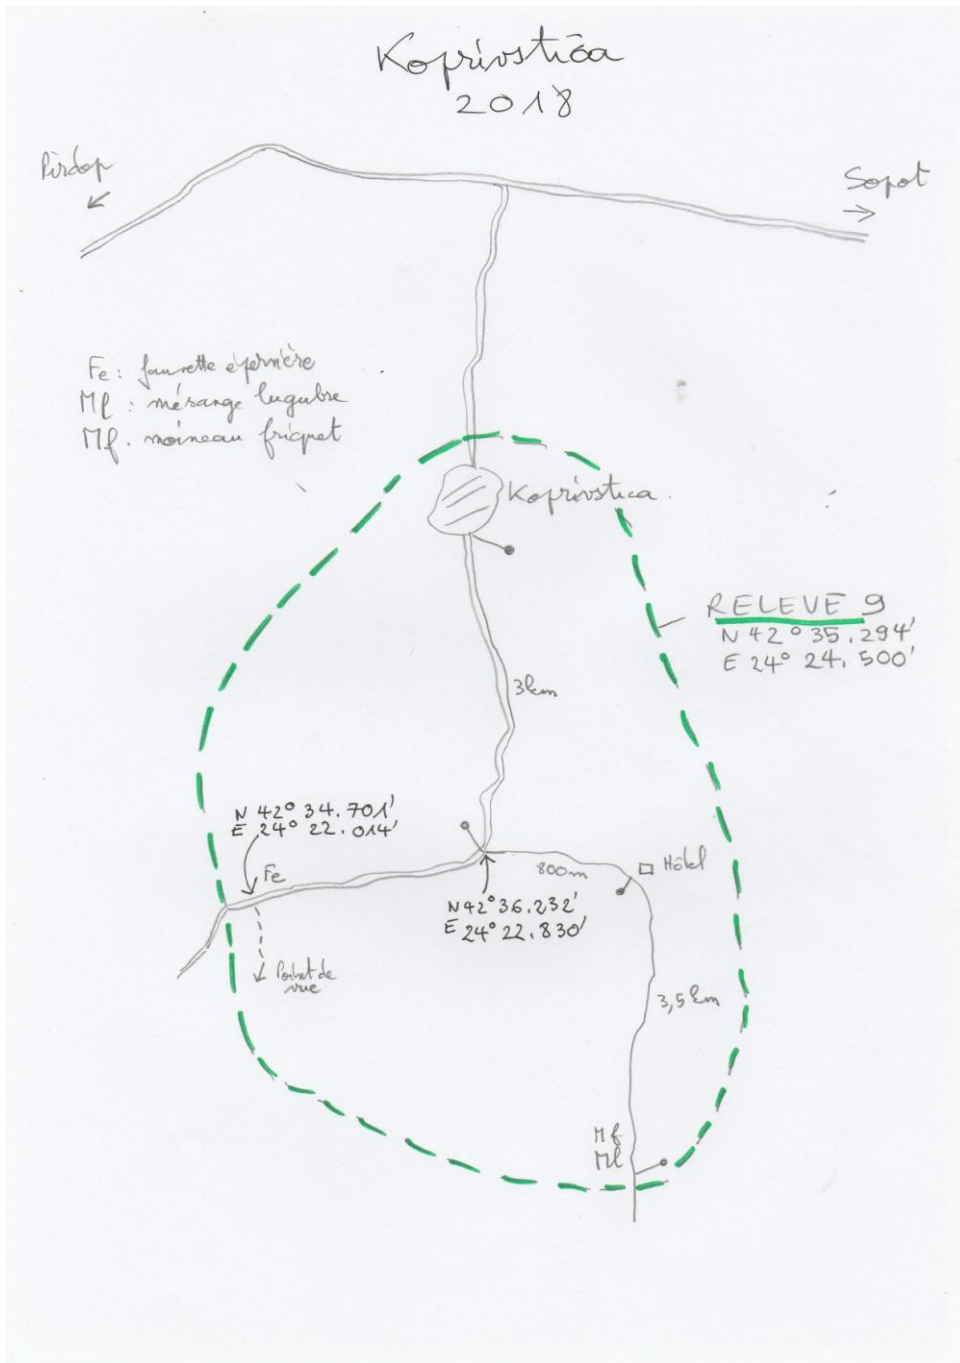 Koprivstića
2018
Pirdop
Sopot
Fe : fauvette épervière
Ml : mésange lugubre
Mf. moineau friquet
Koprivstica.
RELEVE 9
N 42° 35.294'
E 24° 24.500'
3km
N 42° 34.701'
E 24° 22.014'
Fe
800m
Hôtel
N 42° 36.232'
E 24° 22.830'
Point de
vue
3,5 km
Mf
Ml